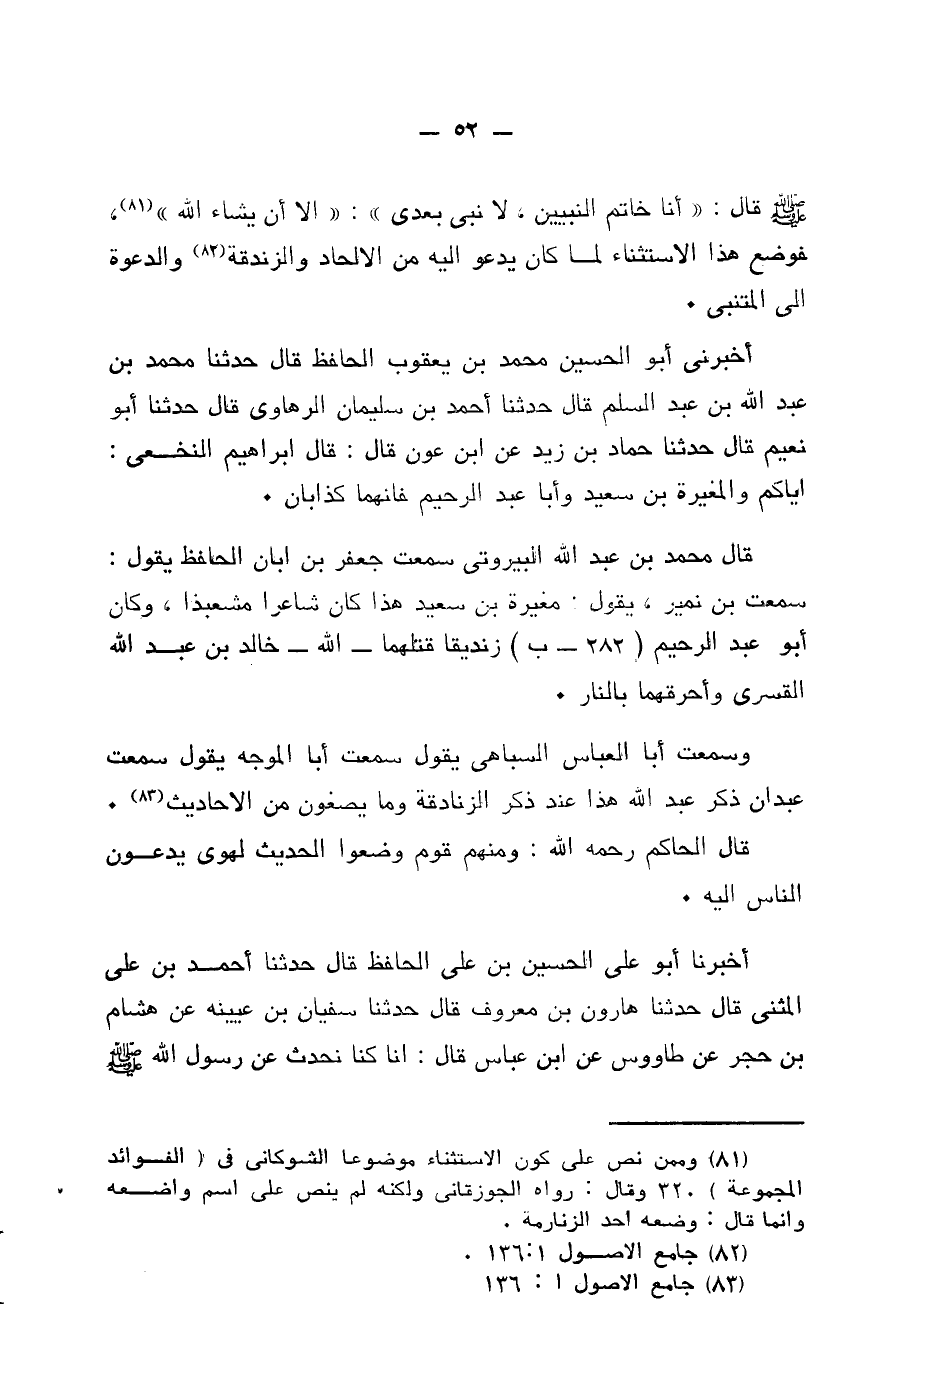 — ٥٢ —
ﷺ قال : « أنا خاتم النبيين ، لا نبى بعدى » : « الا أن يشاء الله »(٨١)،
فوضع هذا الاستثناء لما كان يدعو اليه من الالحاد والزندقة(٨٢) والدعوة
الى المتنبى .
أخبرنى أبو الحسين محمد بن يعقوب الحافظ قال حدثنا محمد بن
عبد الله بن عبد السلم قال حدثنا أحمد بن سليمان الرهاوى قال حدثنا أبو
نعيم قال حدثنا حماد بن زيد عن ابن عون قال : قال ابراهيم النخعى :
اياكم والمغيرة بن سعيد وأبا عبد الرحيم فانهما كذابان .
قال محمد بن عبد الله البيروتى سمعت جعفر بن ابان الحافظ يقول :
سمعت بن نمير ، يقول : مغيرة بن سعيد هذا كان شاعرا مشعبذا ، وكان
أبو عبد الرحيم ( ٢٨٢ – ب ) زنديقا قتلهما – الله – خالد بن عبد الله
القسرى وأحرقهما بالنار .
وسمعت أبا العباس السباهى يقول سمعت أبا الموجه يقول سمعت
عبدان ذكر عبد الله هذا عند ذكر الزنادقة وما يصغون من الاحاديث(٨٣) .
قال الحاكم رحمه الله : ومنهم قوم وضعوا الحديث لهوى يدعون
الناس اليه .
أخبرنا أبو على الحسين بن على الحافظ قال حدثنا أحمد بن على
المثنى قال حدثنا هارون بن معروف قال حدثنا سفيان بن عيينه عن هشام
بن حجر عن طاووس عن ابن عباس قال : انا كنا نحدث عن رسول الله ﷺ
(٨١) وممن نص على كون الاستثناء موضوعا الشوكانى فى ( الفوائد
المجموعة ) ٣٢٠ وقال : رواه الجوزقانى ولكنه لم ينص على اسم واضعه
وانما قال : وضعه احد الزنارمة .
(٨٢) جامع الاصول ١:١٣٦ .
(٨٣) جامع الاصول ١ : ١٣٦